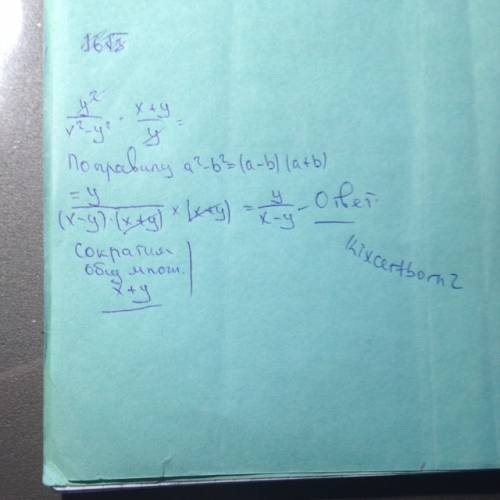 y² / x²-y² · x+y / y =
По правилу a²-b²=(a-b)(a+b)
= y / (x-y)·(x+y) × (x+y) = y / x-y - Ответ.
Сократим
общ множ.
x+y